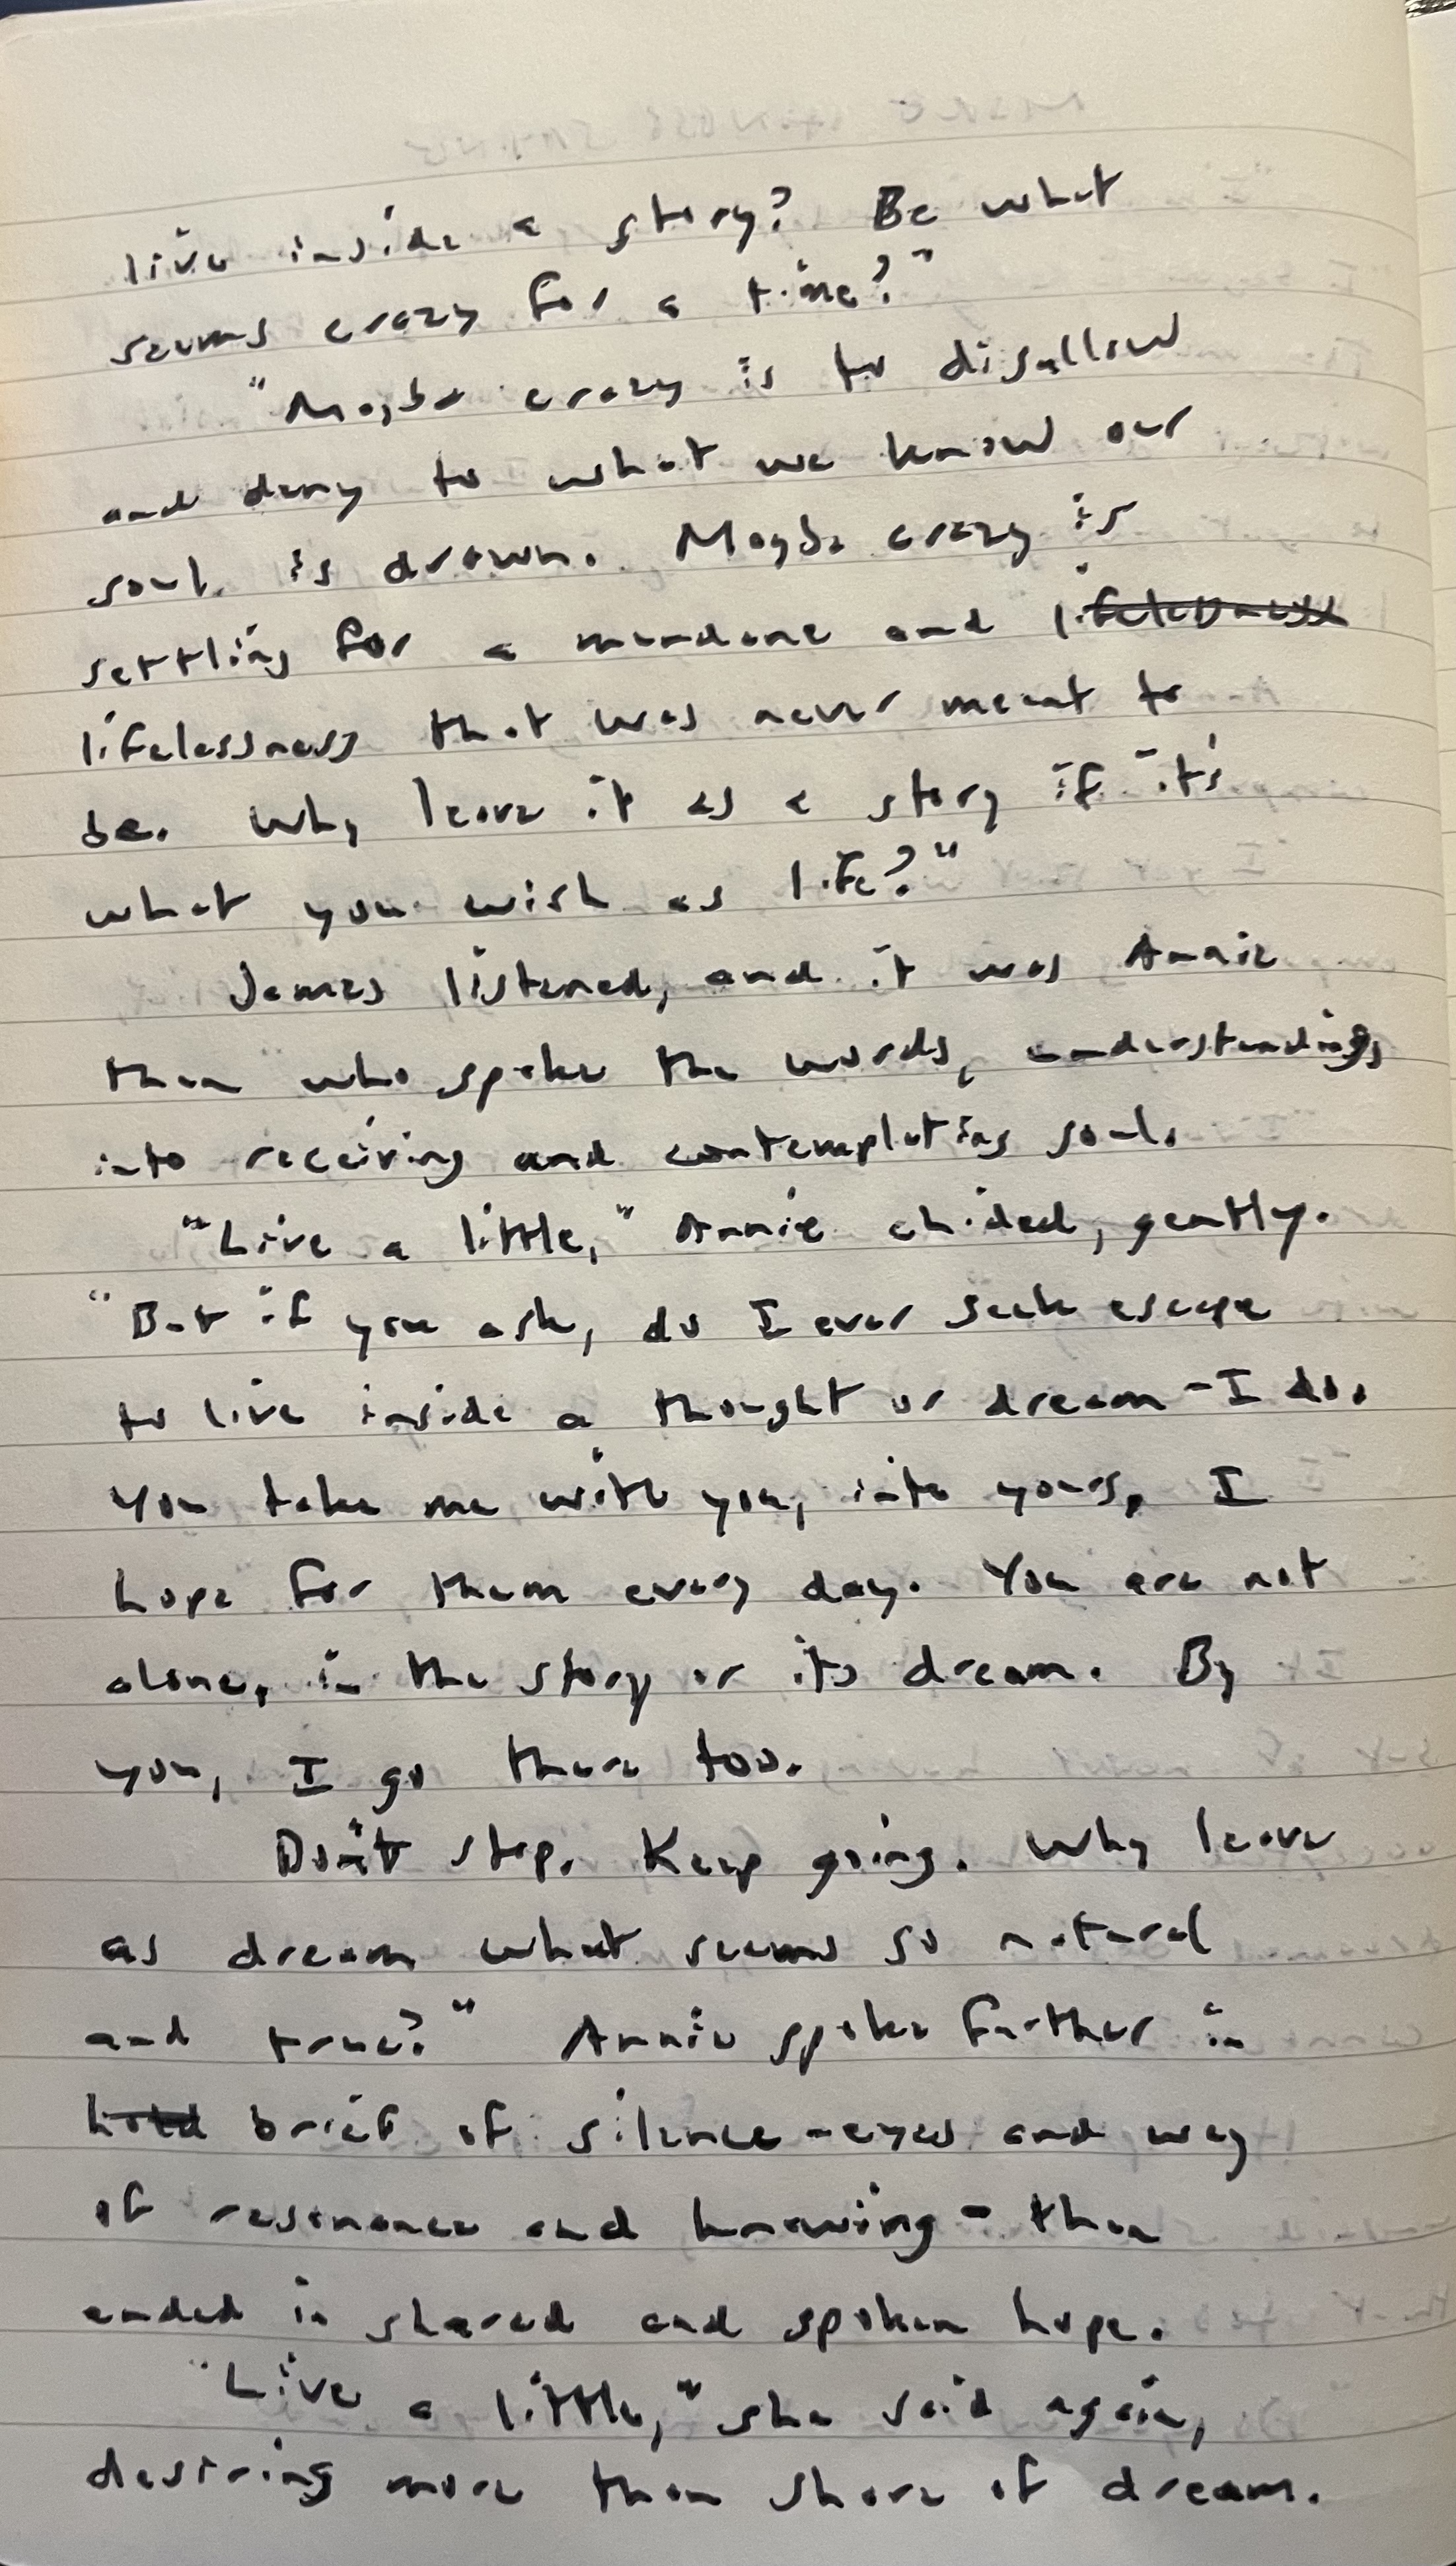 live inside a story? Be what
seems crazy for a time?"
"Maybe crazy is to disallow
and deny to what we know our
soul is drawn. Maybe crazy is
settling for a mundane and lifelessness
lifelessness that was never meant to
be. Why leave it as a story if it's
what you wish as life?"
James listened, and it was Annie
then who spoke the words, understandings
into receiving and contemplating soul.
"Live a little," Annie chided, gently.
"But if you ask, do I ever seek escape
to live inside a thought or dream - I do.
You take me with you, into yours, I
hope for them every day. You are not
alone, in the story or its dream. By
you, I go there too.
Don't stop. Keep going. Why leave
as dream what seems so natural
and true?" Annie spoke further in
hold brief of silence - eyes and way
of resonance and knowing - then
ended in shared and spoken hope.
"Live a little," she said again,
desiring more than share of dream.